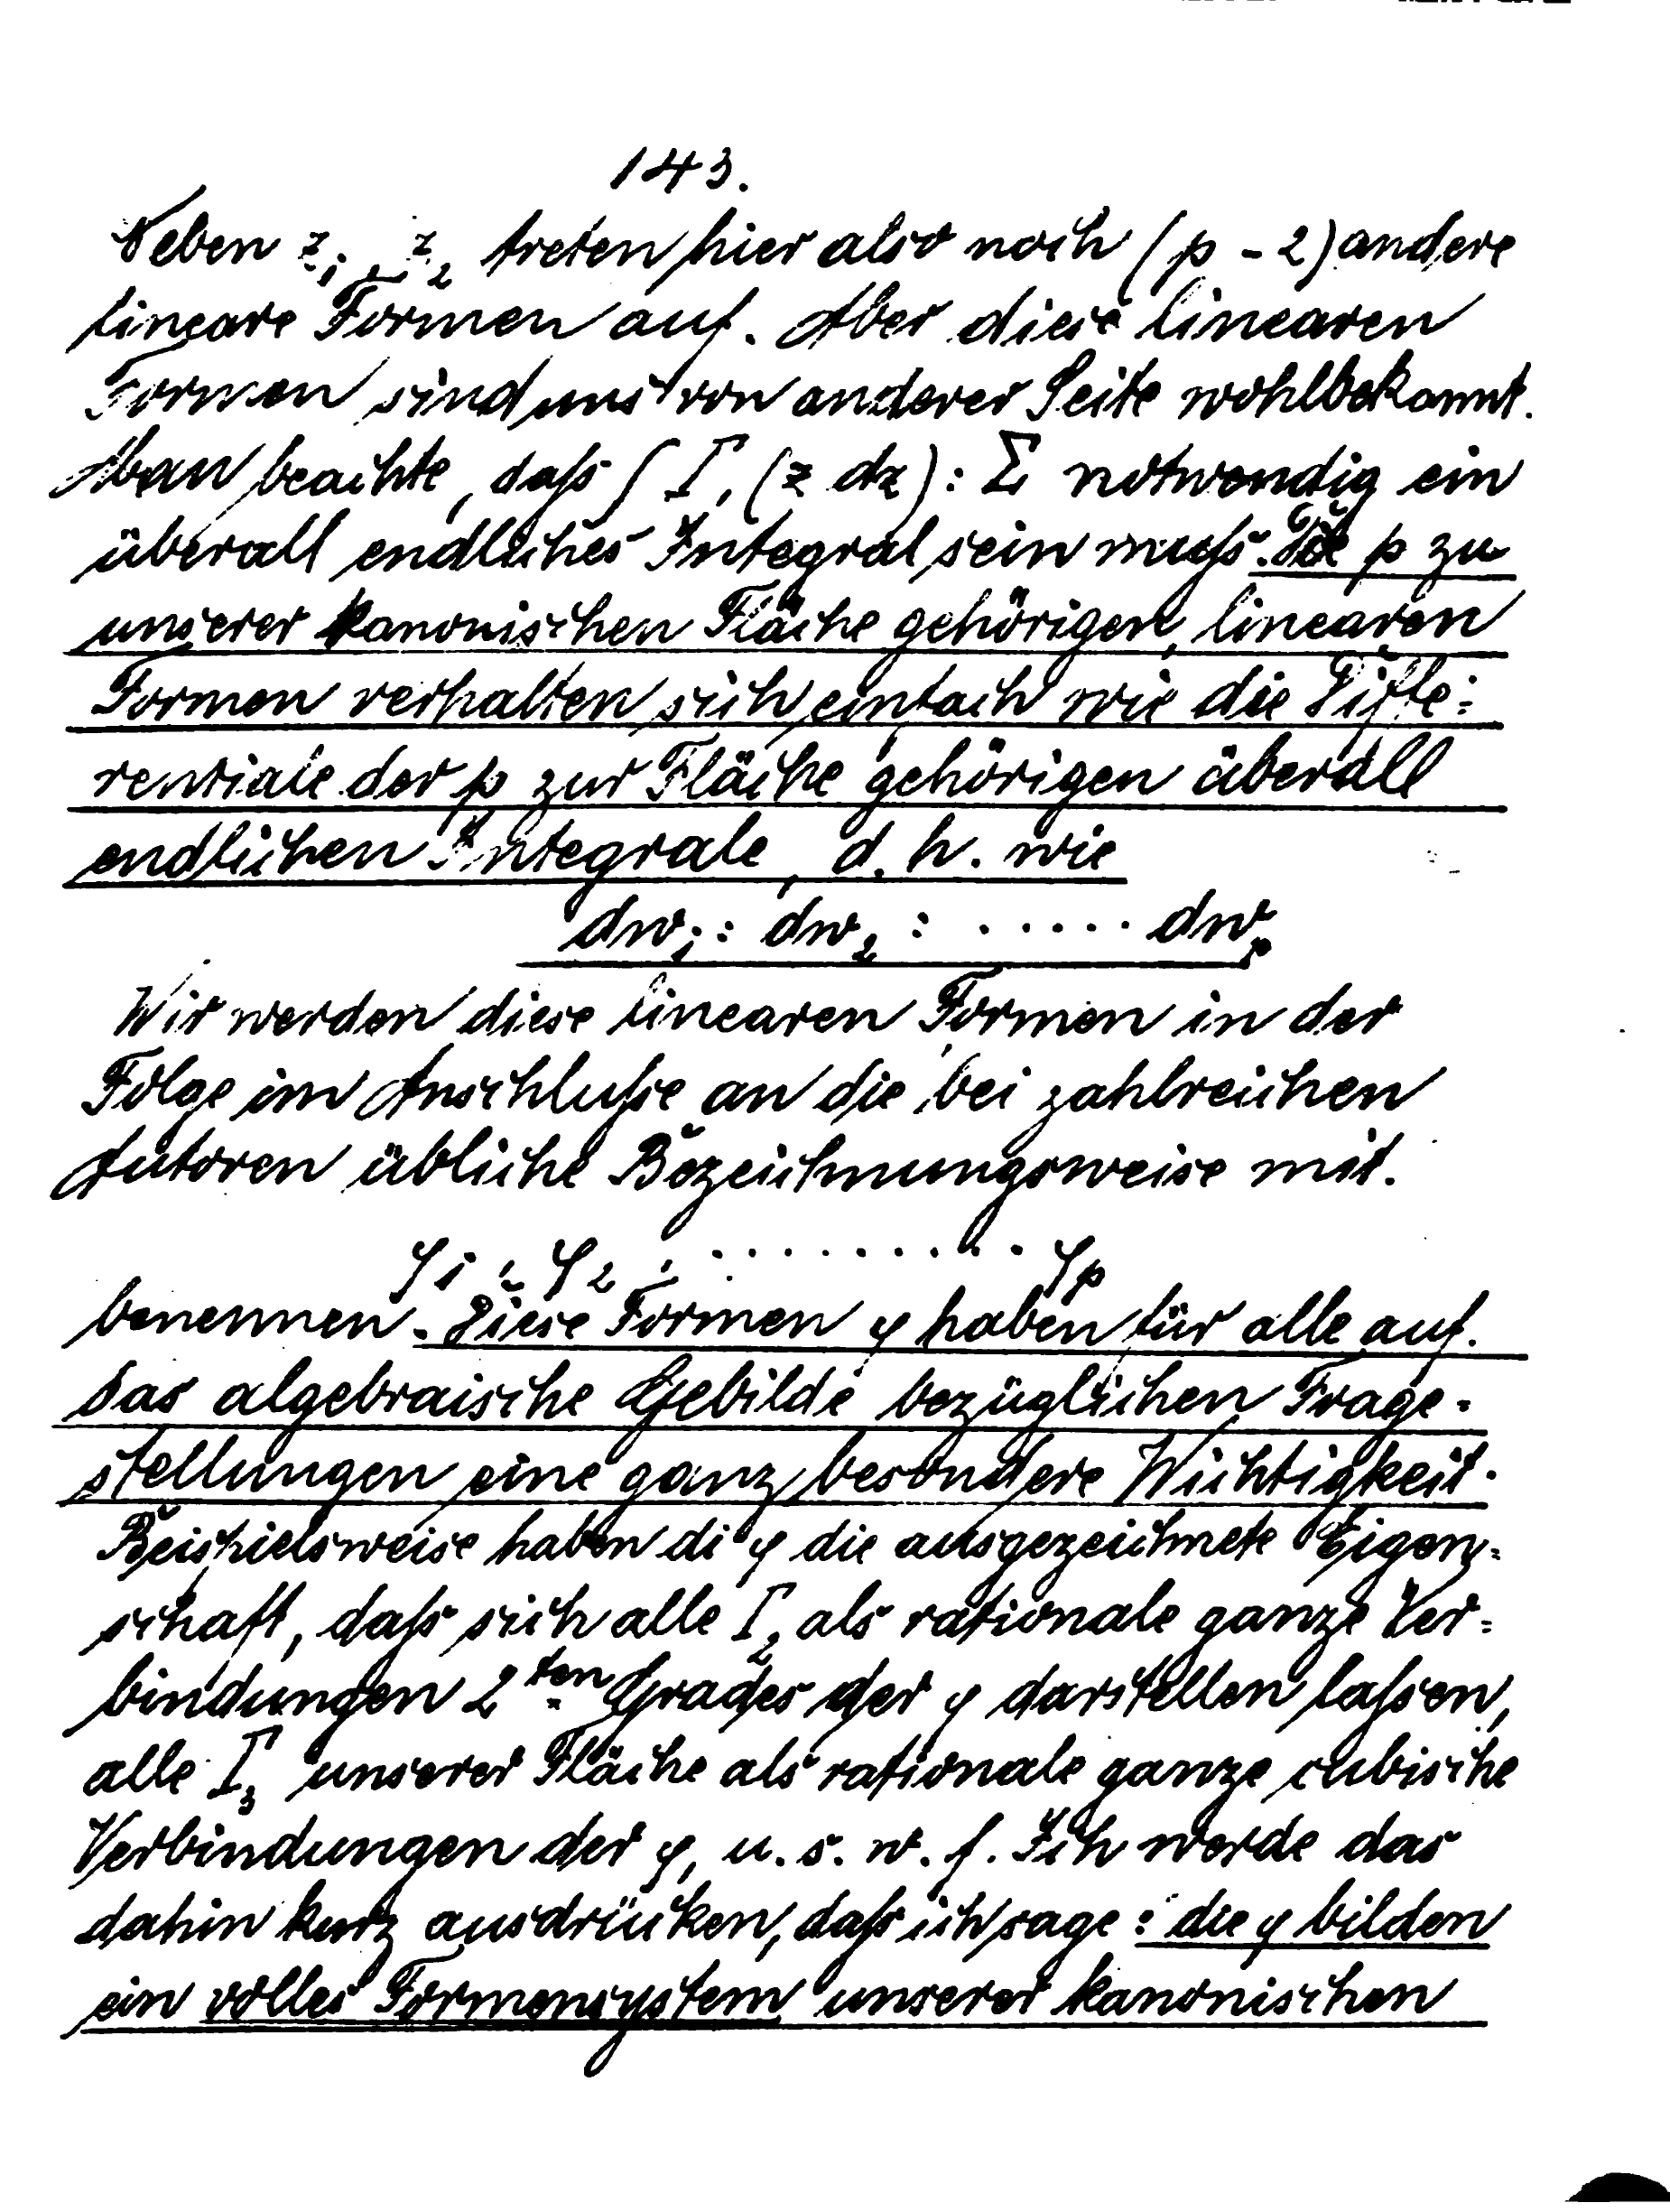 143.
Neben z₁, z₂ treten hier also noch (p - 2) andere
lineare Formen auf. Aber diese linearen
Formen sind uns von anderer Seite wohlbekannt.
Man beachte, daſs ∫ Γ₁ (z dz) : Σ notwendig ein
überall endliches Integral sein muſs. Die p zu
unserer kanonischen Fläche gehörigen, linearen
Formen verhalten sich einfach wie die Diffe=
rentiale der p zur Fläche gehörigen überall
endlichen Integrale, d. h. wie
dw₁ : dw₂ : ..... dwₚ
Wir werden diese linearen Formen in der
Folge im Anschluſse an die bei zahlreichen
Autoren übliche Bezeichnungsweise mit.
φ₁, φ₂, .......... φₚ
benennen. Diese Formen φ haben für alle auf.
das algebraische Gebilde bezüglichen Frage-
stellungen eine ganz besondere Wichtigkeit.
Beispielsweise haben di φ die ausgezeichnete Eigen=
schaft, daſs sich alle Γ₂ als rationale ganze Ver=
bindungen 2ten Grades der φ darstellen laſsen,
alle Γ₃ unserer Fläche als rationale ganze cubische
Verbindungen der φ, u. s. w. f. Ich werde das
dahin kurz ausdrücken, daſs ich sage: die φ bilden
ein volles Formensystem unserer kanonischen